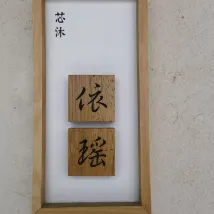 芯沐
依
瑶